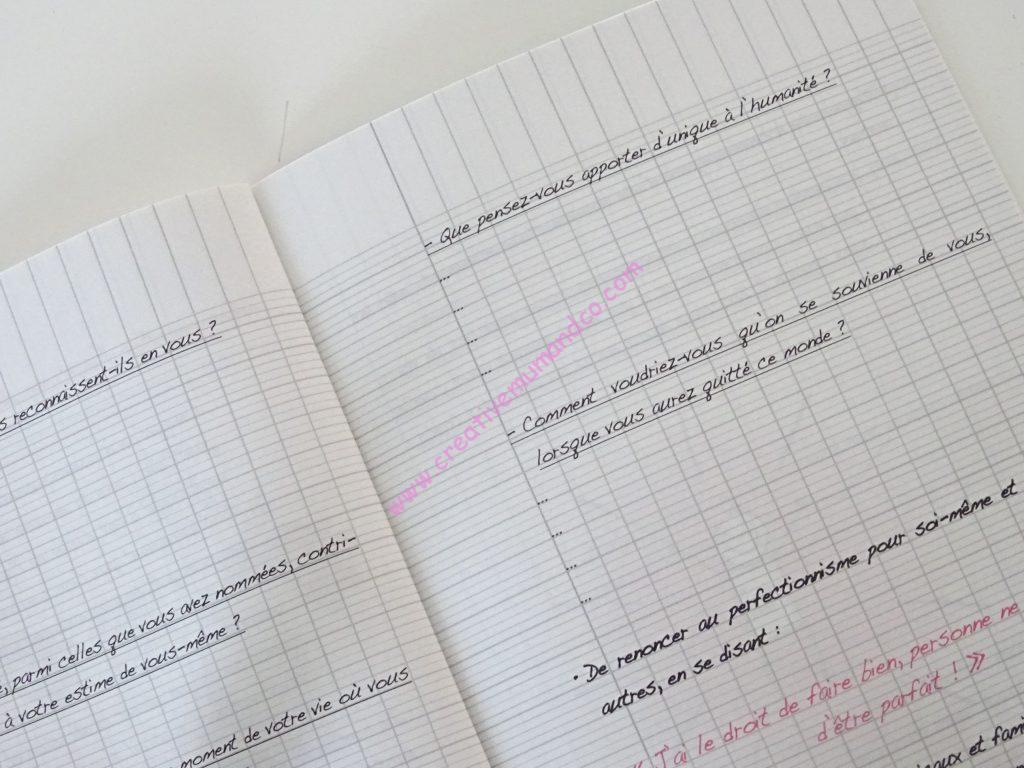 s reconnaissent-ils en vous ?
, parmi celles que vous avez nommées, contri-
à votre estime de vous-même ?
moment de votre vie où vous
- Que pensez-vous apporter d'unique à l'humanité ?
...
...
...
...
- Comment voudriez-vous qu'on se souvienne de vous,
lorsque vous aurez quitté ce monde ?
...
...
...
...
• De renoncer au perfectionnisme pour soi-même et
autres, en se disant :
« J'ai le droit de faire bien, personne ne
d'être parfait ! »
et fami
www.creativemumandco.com